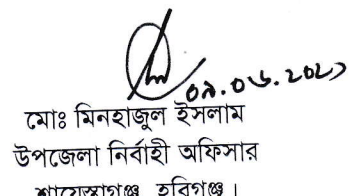 ০৯.০৬.২০২১
মোঃ মিনহাজুল ইসলাম
উপজেলা নির্বাহী অফিসার
শায়েস্তাগঞ্জ, হবিগঞ্জ।